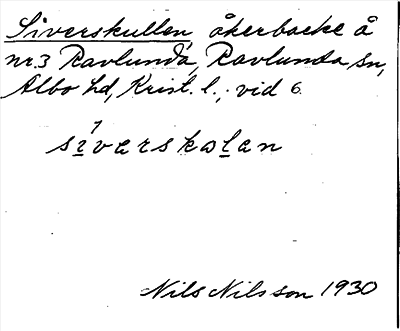 Siverskullen, åkerbacke å
nr. 3 Ravlunda, Ravlunda sn,
Albo hd, Krist. l., vid 6
sivarskolan
Nils Nilsson 1930